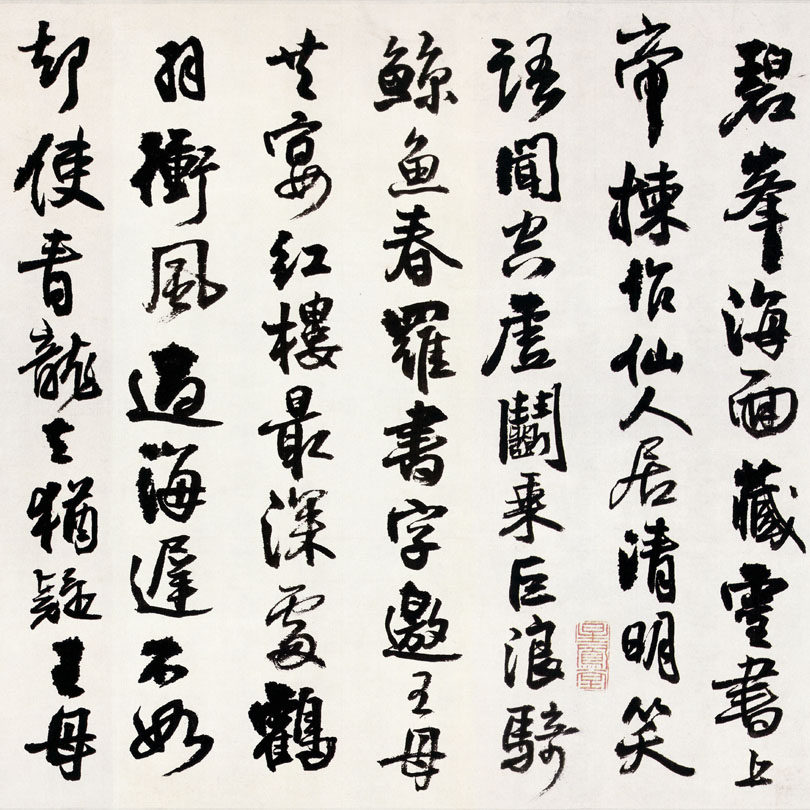 碧峯海面藏靈書上
帝揀作仙人居清明笑
語聞空虛鬭乘巨浪騎
鯨魚春羅書字邀王母
共宴紅樓最深處鶴
羽衝風過海遲不如
却使青龍去猶疑王母